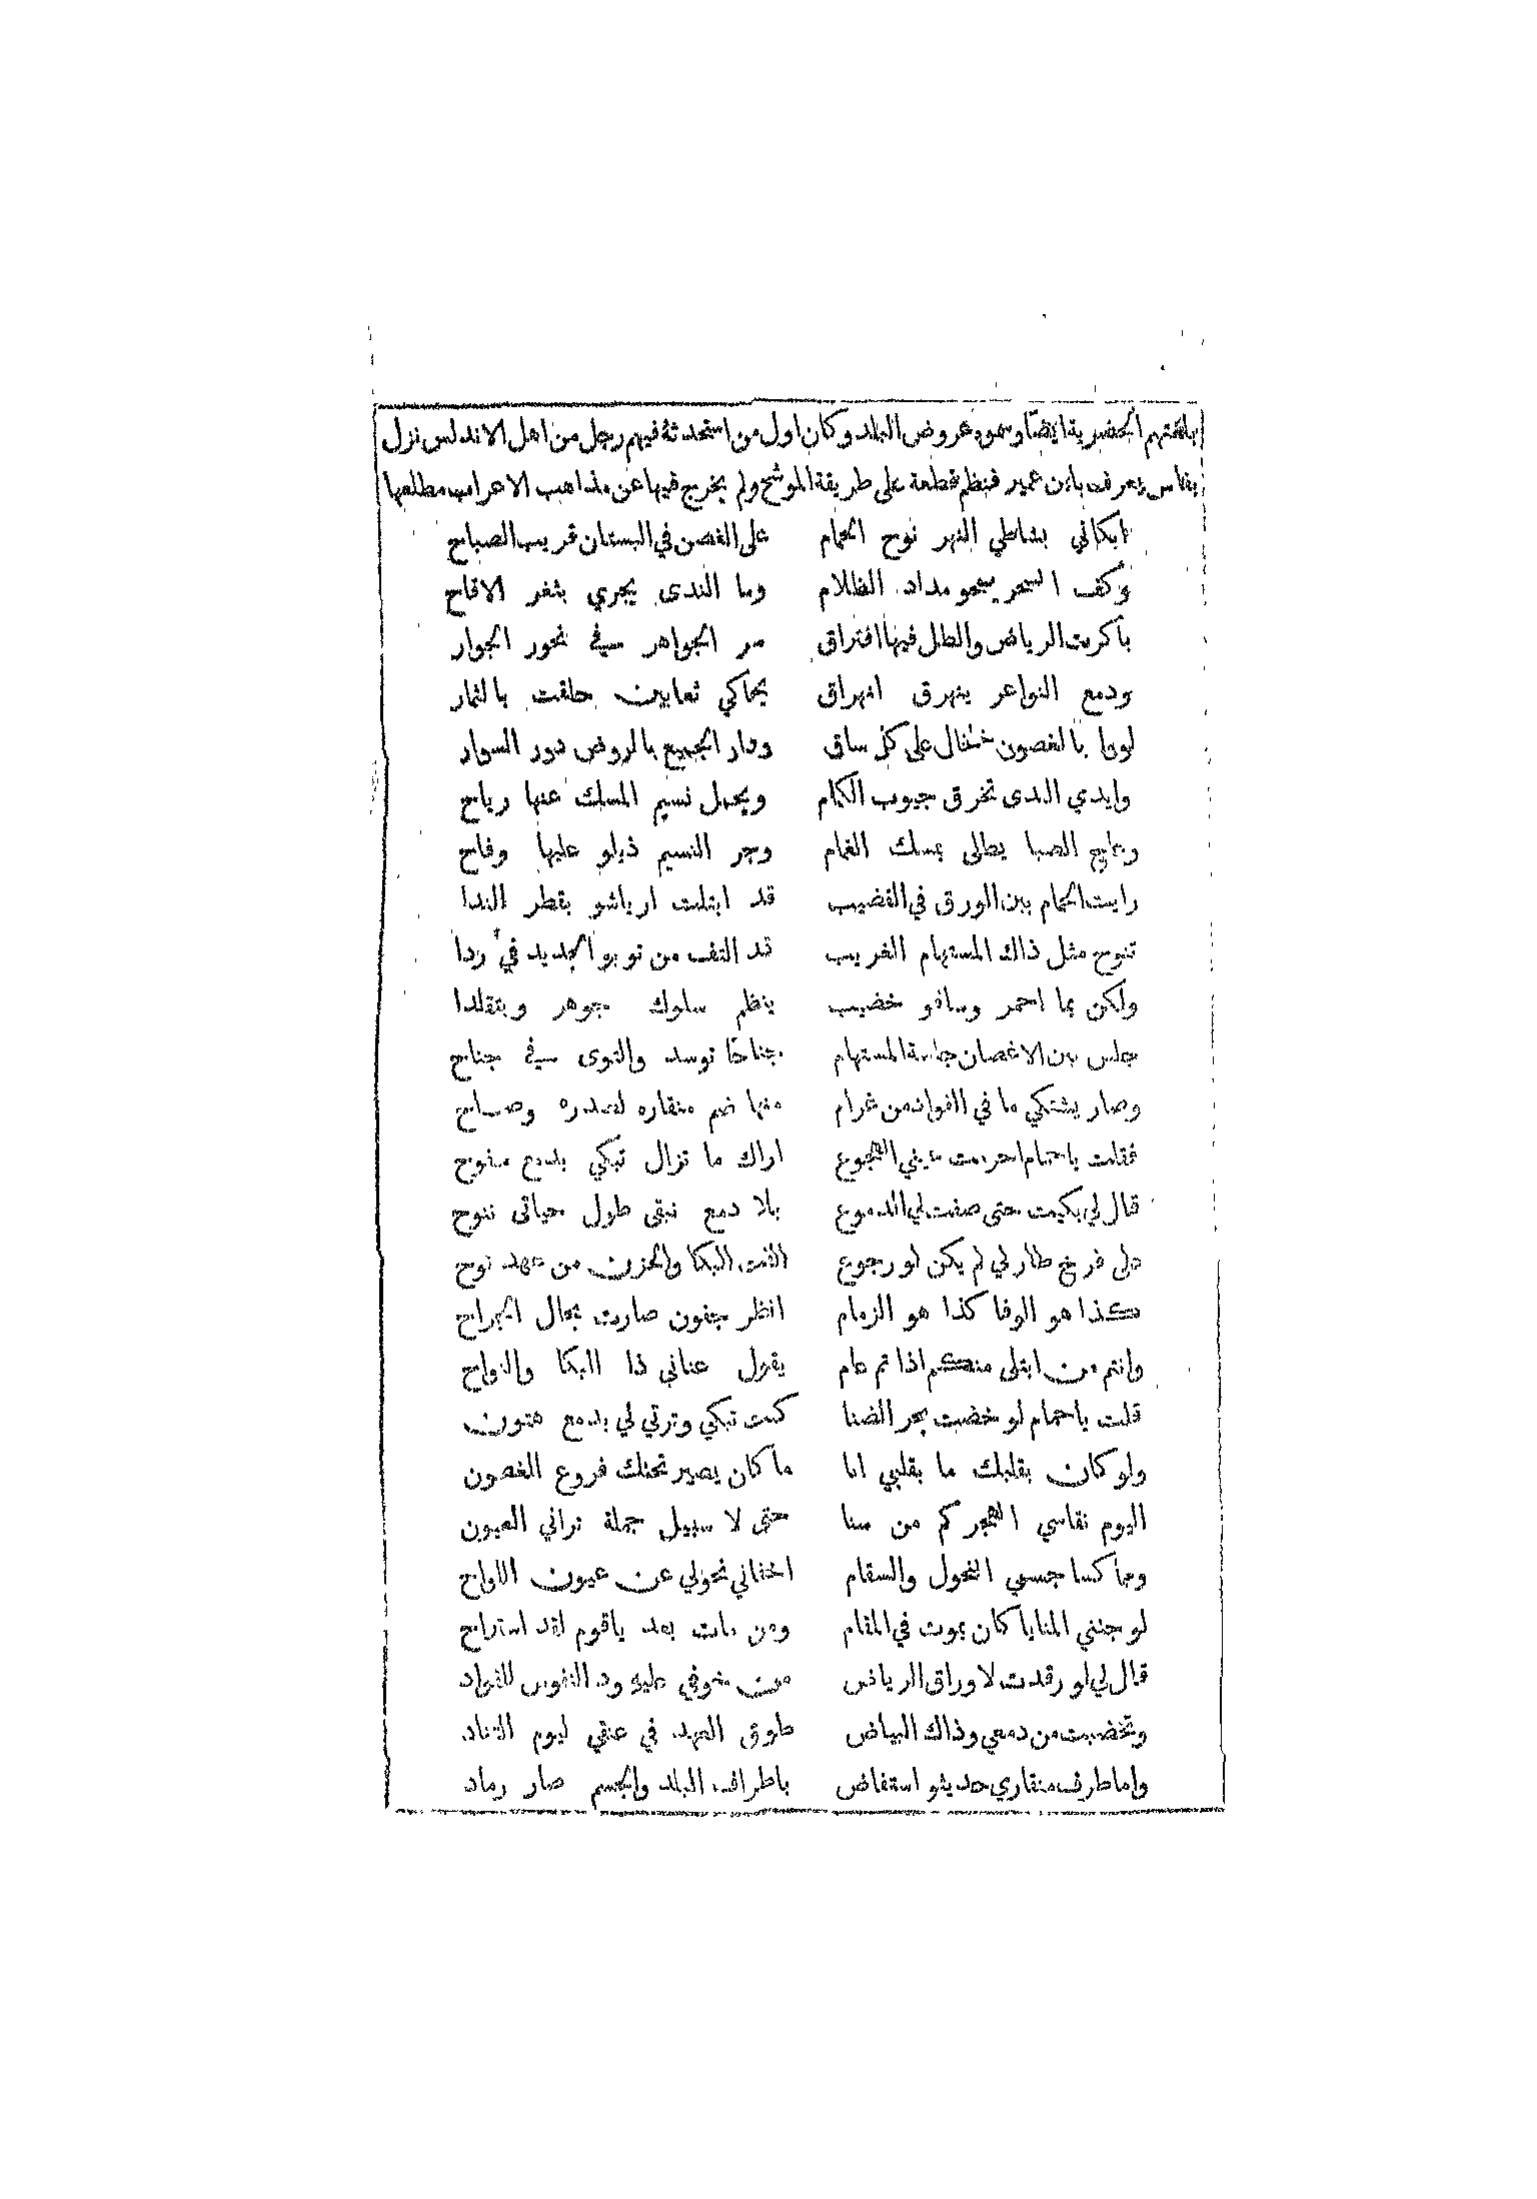 بلغتهم الحضرية ايضًا وسموه عروض البلد وكان اول من استحدثه فيهم رجل من اهل الاندلس نزل
بفاس يعرف بابن عمير فنظم قطعة على طريقة الموشح ولم يخرج فيها عن مذاهب الاعراب مطلعها
ابكاني بشاطي النهر نوح الحمام على الغصن في البستان قريب الصباح
وكف السحر يمحو مداد الظلام وما الندى يجري بثغر الاقاح
باكرت الرياض والطل فيها افتراق سر الجواهر في نحور الجوار
ودمع النواعر ينهرق انهراق يحاكي ثعابين حلقت بالثمار
لووا بالغصون خلخال على كل ساق ودار الجميع بالروض دور السوار
وايدي الندى تخرق جيوب الكمام ويحمل نسيم المسك عنها رياح
وعاج الصبا يطلى بمسك الغمام وجر النسيم ذيلو عليها وفاح
رايت الحمام بين الورق في القضيب قد ابتلت ارياشو بقطر الندا
تنوح مثل ذاك المستهام الغريب قد التف من توبو الجديد في ردا
ولكن بما احمر وساقو خضيب ينظم سلوك جوهر ويتقلدا
جلس بين الاغصان جلسة المستهام جناحًا توسد والتوى في جناح
وصار يشتكي ما في الفواد من غرام منها ضم منقاره لصدره وصاح
فقلت ياحمام احرمت عيني الهجوع اراك ما تزال تبكي بدمع سفوح
قال لي بكيت حتى صفت لي الدموع بلا دمع نبقى طول حياتى ننوح
على فرخ طار لي لم يكن لو رجوع الفت البكا والحزن من عهد نوح
كذا هو الوفا كذا هو الزمام انظر جفون صارت بحال الجراح
وانتم من ابتلى منكم اذا تم عام يقول عناني ذا البكا والنواح
قلت ياحمام لو خضت بحر الضنا كنت تبكي وترتي لي بدمع هتون
ولو كان بقلبك ما بقلبي انا ماكان يصير تحتك فروع الغصون
اليوم نقاسي الهجر كم من سنا حتى لا سبيل جملة تراني العيون
ومما كسا جسمي النحول والسقام اخفاني نحولي عن عيون اللواح
لو جتني المنايا كان يموت في المقام ومن مات بعد ياقوم لقد استراح
قال لي لو رقدت لاوراق الرياض من خوفي عليه ود النفوس للفواد
وتخضبت من دمعي وذاك البياض طوق العهد في عنقي ليوم التناد
واما طرف منقاري حديثو استفاض باطراف البلد والجسم صار رماد